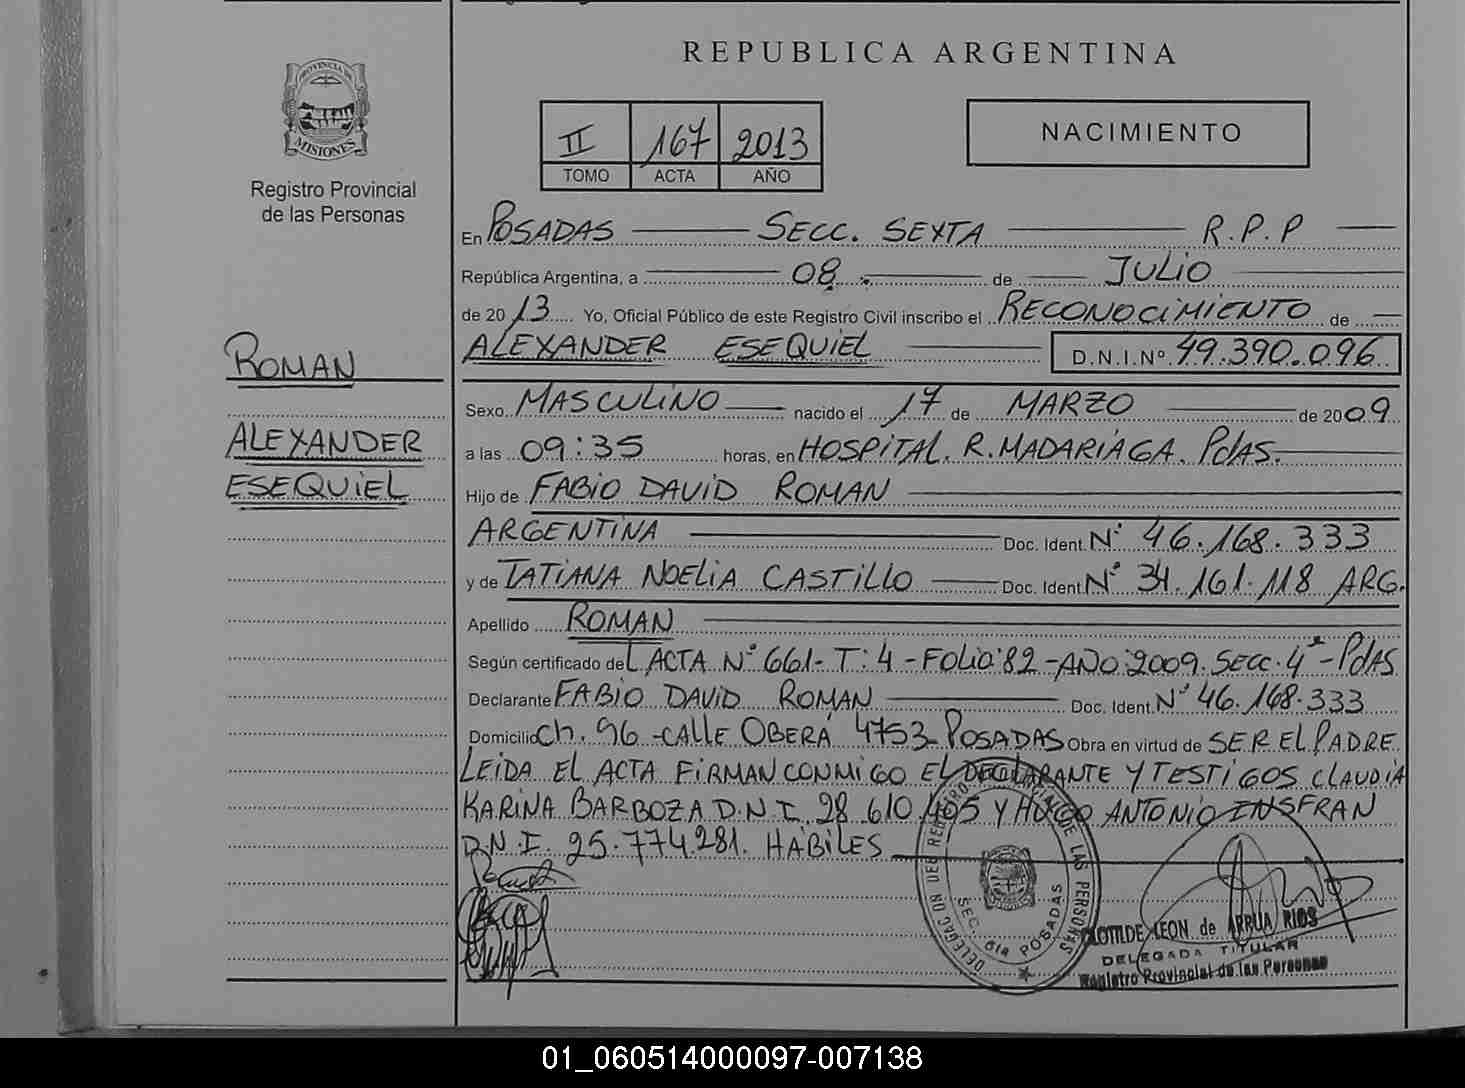 REPUBLICA ARGENTINA
PROVINCIA DE
MISIONES
Registro Provincial
de las Personas
II 167 2013
TOMO ACTA AÑO
NACIMIENTO
En POSADAS SECC. SEXTA R.P.P
República Argentina, a 08 de JULIO
de 20 13 Yo, Oficial Público de este Registro Civil inscribo el RECONOCIMIENTO de
ALEXANDER ESEQUIEL D.N.I.Nº 49.390.096
ROMAN
ALEXANDER
ESEQUIEL
Sexo MASCULINO nacido el 17 de MARZO de 2009
a las 09:35 horas, en HOSPITAL. R. MADARIAGA. PdAS.
Hijo de FABIO DAVID ROMAN
ARGENTINA Doc. Ident. Nº 46.168.333
y de TATIANA NOELIA CASTILLO Doc. Ident. Nº 34.161.118 ARG.
Apellido ROMAN
Según certificado de L ACTA Nº 661- T: 4 - FOLIO: 82 - AÑO: 2009. SECC. 4ª - PdAS
Declarante FABIO DAVID ROMAN Doc. Ident. Nº 46.168.333
Domicilio Ch. 96 - CALLE OBERÁ 4753 - POSADAS Obra en virtud de SER EL PADRE
LEIDA EL ACTA FIRMAN CONMIGO EL DECLARANTE Y TESTIGOS CLAUDIA
KARINA BARBOZA D.N.I. 28.610.405 Y HUGO ANTONIO INSFRAN
D.N.I. 25.774.281. HABILES
DELEGACION DEL REGISTRO PROVINCIAL DE LAS PERSONAS
SEC. 6ta POSADAS
CLOTILDE LEON de ARRUA RIOS
DELEGADA TITULAR
Registro Provincial de las Personas
01_060514000097-007138